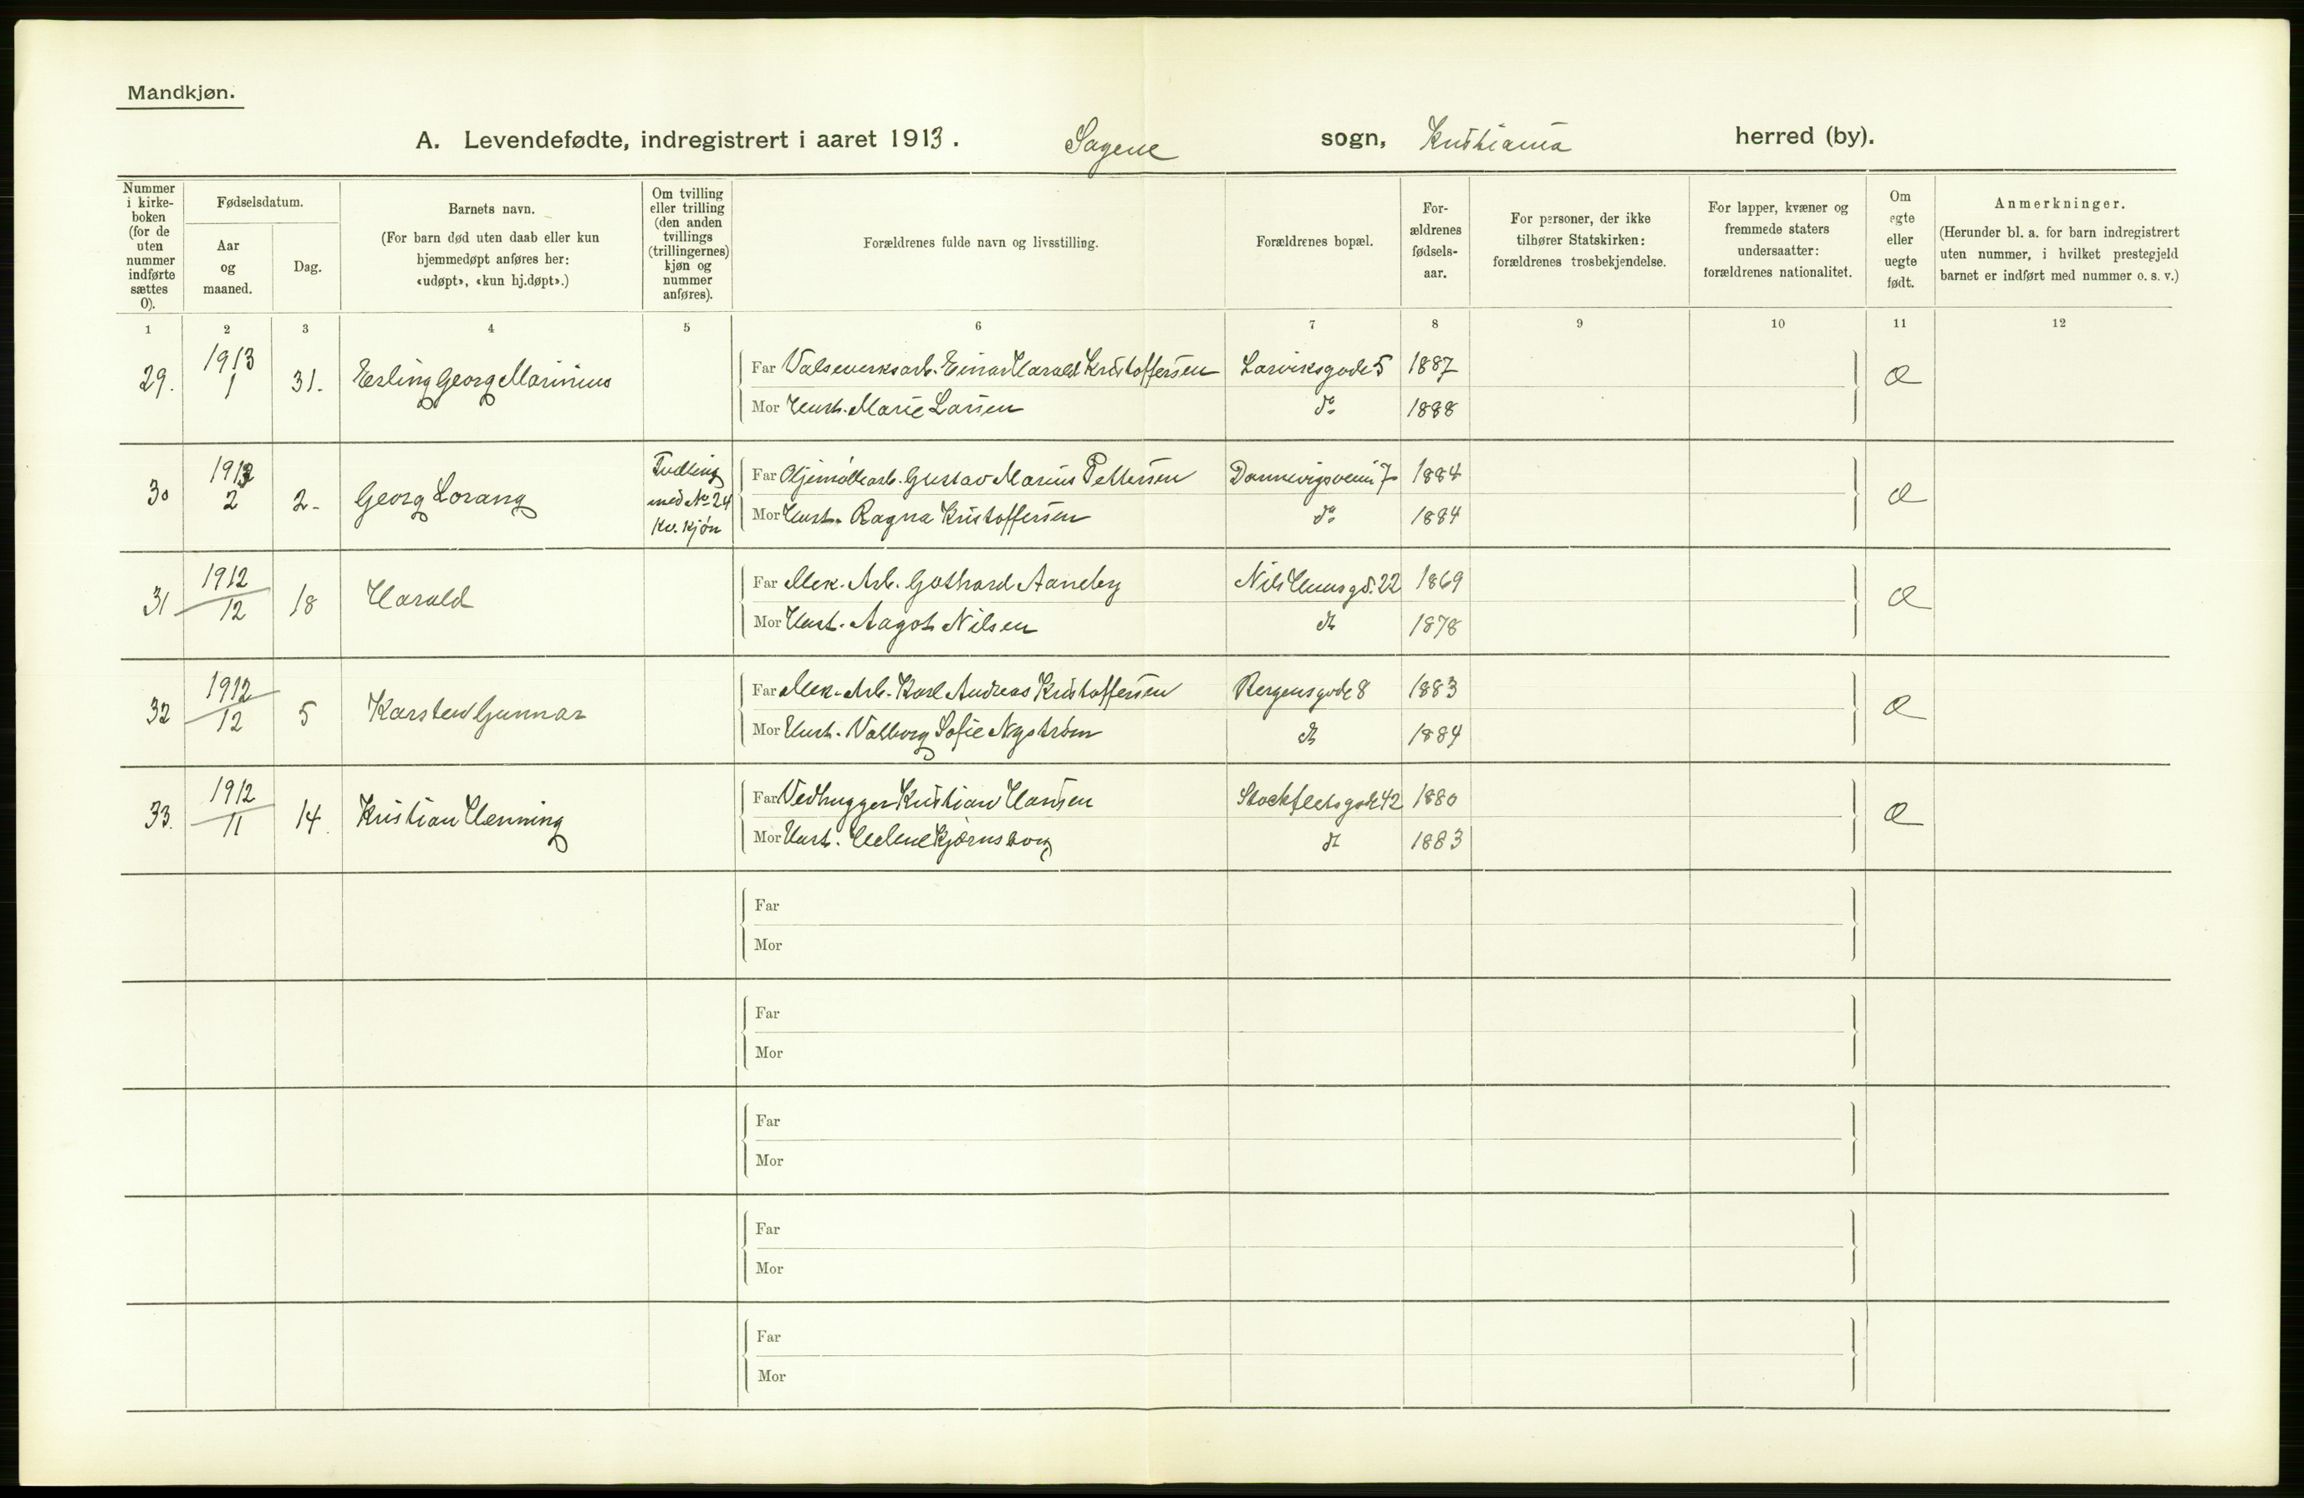 Mandkjøn.
A. Levendefødte, indregistrert i aaret 1913. Sagene sogn, Kristiania herred (by).
Nummer i kirke-boken (for de uten nummer indførte sættes 0).
Fødselsdatum.
Aar og maaned.
Dag.
Barnets navn.
(For barn død uten daab eller kun hjemmedøpt anføres her: «udøpt», «kun hj.døpt».)
Om tvilling eller trilling (den anden tvillings (trillingernes) kjøn og nummer anføres).
Forældrenes fulde navn og livsstilling.
Forældrenes bopæl.
For-ældrenes fødsels-aar.
For personer, der ikke tilhører Statskirken: forældrenes trosbekjendelse.
For lapper, kvæner og fremmede staters undersaatter: forældrenes nationalitet.
Om egte eller uegte født.
Anmerkninger.
(Herunder bl. a. for barn indregistrert uten nummer, i hvilket prestegjeld barnet er indført med nummer o. s. v.)
1 2 3 4 5 6 7 8 9 10 11 12
29. 1913 1 31. Erling Georg Marinius
Far Valseverksarb. Einar Harald Kristoffersen Larviksgade 5 1887
Mor Hust. Marie Larsen do 1888
30 1913 2 2. Georg Lorang Tvilling med No 24 Kv. kjøn
Far Oljemøllearb. Gustav Marius Pettersen Dannevigsvein 7 1884
Mor Hust. Ragna Kristoffersen do 1884
31 1912 12 18 Harald
Far Mek. Arb. Gothard Aaneby Nils Huusgd. 22 1869
Mor Hust. Aagot Nilsen do 1878
32 1912 12 5 Karsten Gunnar
Far Mek. Arb. Karl Andreas Kristoffersen Bergensgade 8 1883
Mor Hust. Valborg Sofie Nystrøm do 1884
33. 1912 11 14. Kristian Henning
Far Vedhugger Kristian Hansen Stockfletsgade 42 1880
Mor Hust. Helene do 1883
Far
Mor
Far
Mor
Far
Mor
Far
Mor
Far
Mor